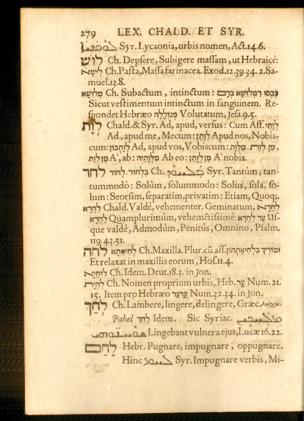 279 LEX. CHALD. ET SYR.
Syr. Lycaonia, urbis nomen, Act. 14. 6.
לוש Ch. Depsere, Subigere massam, ut Hebraicè:
לישא Ch. Pasta, Massa farinacea. Exod. 12. 39. 34. 2. Sa-
muel. 13. 8.
Ch. Subactum, intinctum:
Sicut vestimentum intinctum in sanguinem. Re-
spondet Hebræo Volutatum, Jesa. 9. 5.
לות Chald. & Syr. Ad, apud, versus: Cum Aff. לותי
Ad, apud me, Mecum: Apud nos, Nobis-
cum: Ad, apud vos, Vobiscum:
A', ab: Ab eo: A' nobis.
לחד Ch. Syr. Tantum, tan-
tummodò: Solùm, solummodo: Solus, sola, so-
lum: Seorsim, separatim, privatim: Etiam, Quoq;
לחדא Chald. Valdè, vehementer. Geminatum,
Quamplurimùm, vehemẽtissimè: Us-
que valdè, Admodùm, Penitùs, Omnino, Psalm.
119. 43. 51.
Ch. Maxilla. Plur. cũ aff.
Et relaxat in maxillis eorum, Hos. 11. 4.
Ch. Idem. Deut. 18. 3. in Jon.
Ch. Nomen proprium urbis, Heb. ער Num. 21.
15. Item pro Hebræo Num. 32. 34. in Jon.
לחך Ch. Lambere, lingere, delingere, Græc.
Pahel לחך Idem. Sic Syriac.
Lingebant vulnera ejus, Luc. 16. 22.
לחם Hebr. Pugnare, impugnare, oppugnare.
Hinc Syr. Impugnare verbis, Mi-